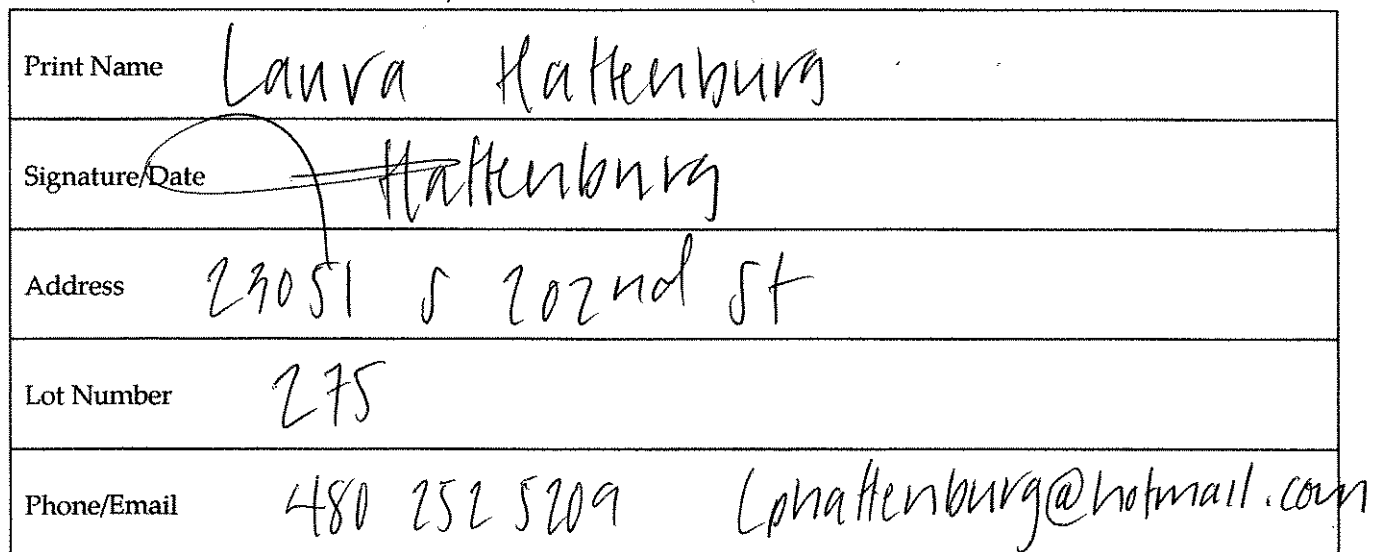 Print Name Laura Hattenburg
Signature/Date Hattenburg
Address 23051 S 202nd St
Lot Number 275
Phone/Email 480 252 5209 lphattenburg@hotmail.com